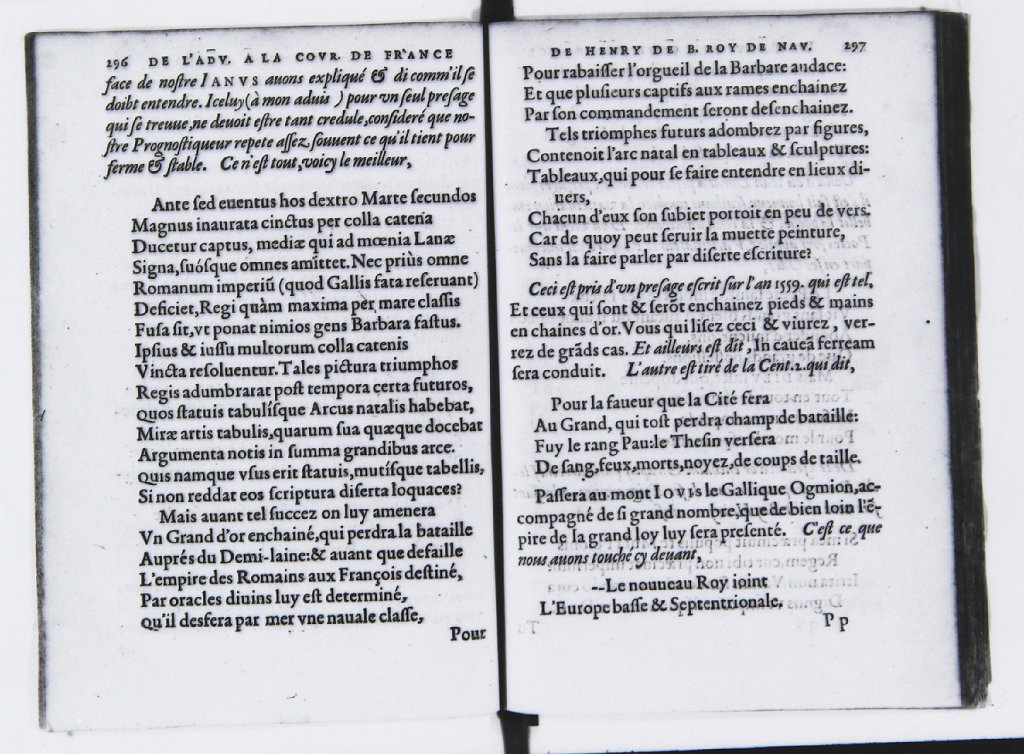 296 DE L'ADV. A LA COVR. DE FRANCE
face de nostre IANVS auons expliqué & di comm'il se
doibt entendre. Iceluy (à mon aduis) pour vn seul presage
qui se treuue, ne deuoit estre tant credule, consideré que no-
stre Prognostiqueur repete assez souuent ce qu'il tient pour
ferme & stable. Ce n'est tout, voicy le meilleur,
Ante sed euentus hos dextro Marte secundos
Magnus inaurata cinctus per colla catena
Ducetur captus, mediæ qui ad mœnia Lanæ
Signa, suósque omnes amittet. Nec priùs omne
Romanum imperiũ (quod Gallis fata reseruant)
Deficiet, Regi quàm maxima per mare classis
Fusa sit, vt ponat nimios gens Barbara fastus.
Ipsius & iussu multorum colla catenis
Vincta resoluentur. Tales pictura triumphos
Regis adumbrarat post tempora certa futuros,
Quos statuis tabulísque Arcus natalis habebat,
Miræ artis tabulis, quarum sua quæque docebat
Argumenta notis in summa grandibus arce.
Quis namque vsus erit statuis, mutísque tabellis,
Si non reddat eos scriptura diserta loquaces?
Mais auant tel succez on luy amenera
Vn Grand d'or enchainé, qui perdra la bataille
Auprés du Demi-laine: & auant que defaille
L'empire des Romains aux François destiné,
Par oracles diuins luy est determiné,
Qu'il desfera par mer vne nauale classe,
Pour
DE HENRY DE B. ROY DE NAV. 297
Pour rabaisser l'orgueil de la Barbare audace:
Et que plusieurs captifs aux rames enchainez
Par son commandement seront desenchainez.
Tels triomphes futurs adombrez par figures,
Contenoit l'arc natal en tableaux & sculptures:
Tableaux, qui pour se faire entendre en lieux di-
uers,
Chacun d'eux son subiet portoit en peu de vers.
Car de quoy peut seruir la muette peinture,
Sans la faire parler par diserte escriture?
Ceci est pris d'vn presage escrit sur l'an 1559. qui est tel,
Et ceux qui sont & serõt enchainez pieds & mains
en chaines d'or. Vous qui lisez ceci & viurez, ver-
rez de grãds cas. Et ailleurs est dit, In caueã ferream
sera conduit. L'autre est tiré de la Cent. 2. qui dit,
Pour la faueur que la Cité fera
Au Grand, qui tost perdra champ de bataille:
Fuy le rang Pau: le Thesin versera
De sang, feux, morts, noyez, de coups de taille.
Passera au mont IOVIS le Gallique Ogmion, ac-
compagné de si grand nombre, que de bien loin l'ẽ-
pire de la grand loy luy sera presenté. C'est ce que
nous auons touché cy deuant,
--Le nouueau Roy ioint
L'Europe basse & Septentrionale.
Pp